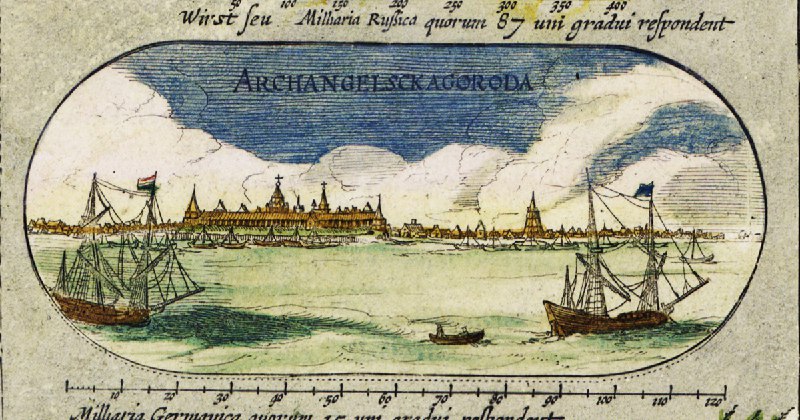 50 100 150 200 250 300 350 400
Wirst seu Milliaria Russica quorum 87 uni gradui respondent
ARCHANGELSCKAGORODA
10 20 30 40 50 60 70 80 90 100 110 120
Milliaria Germanica quorum 15 uni gradui respondent